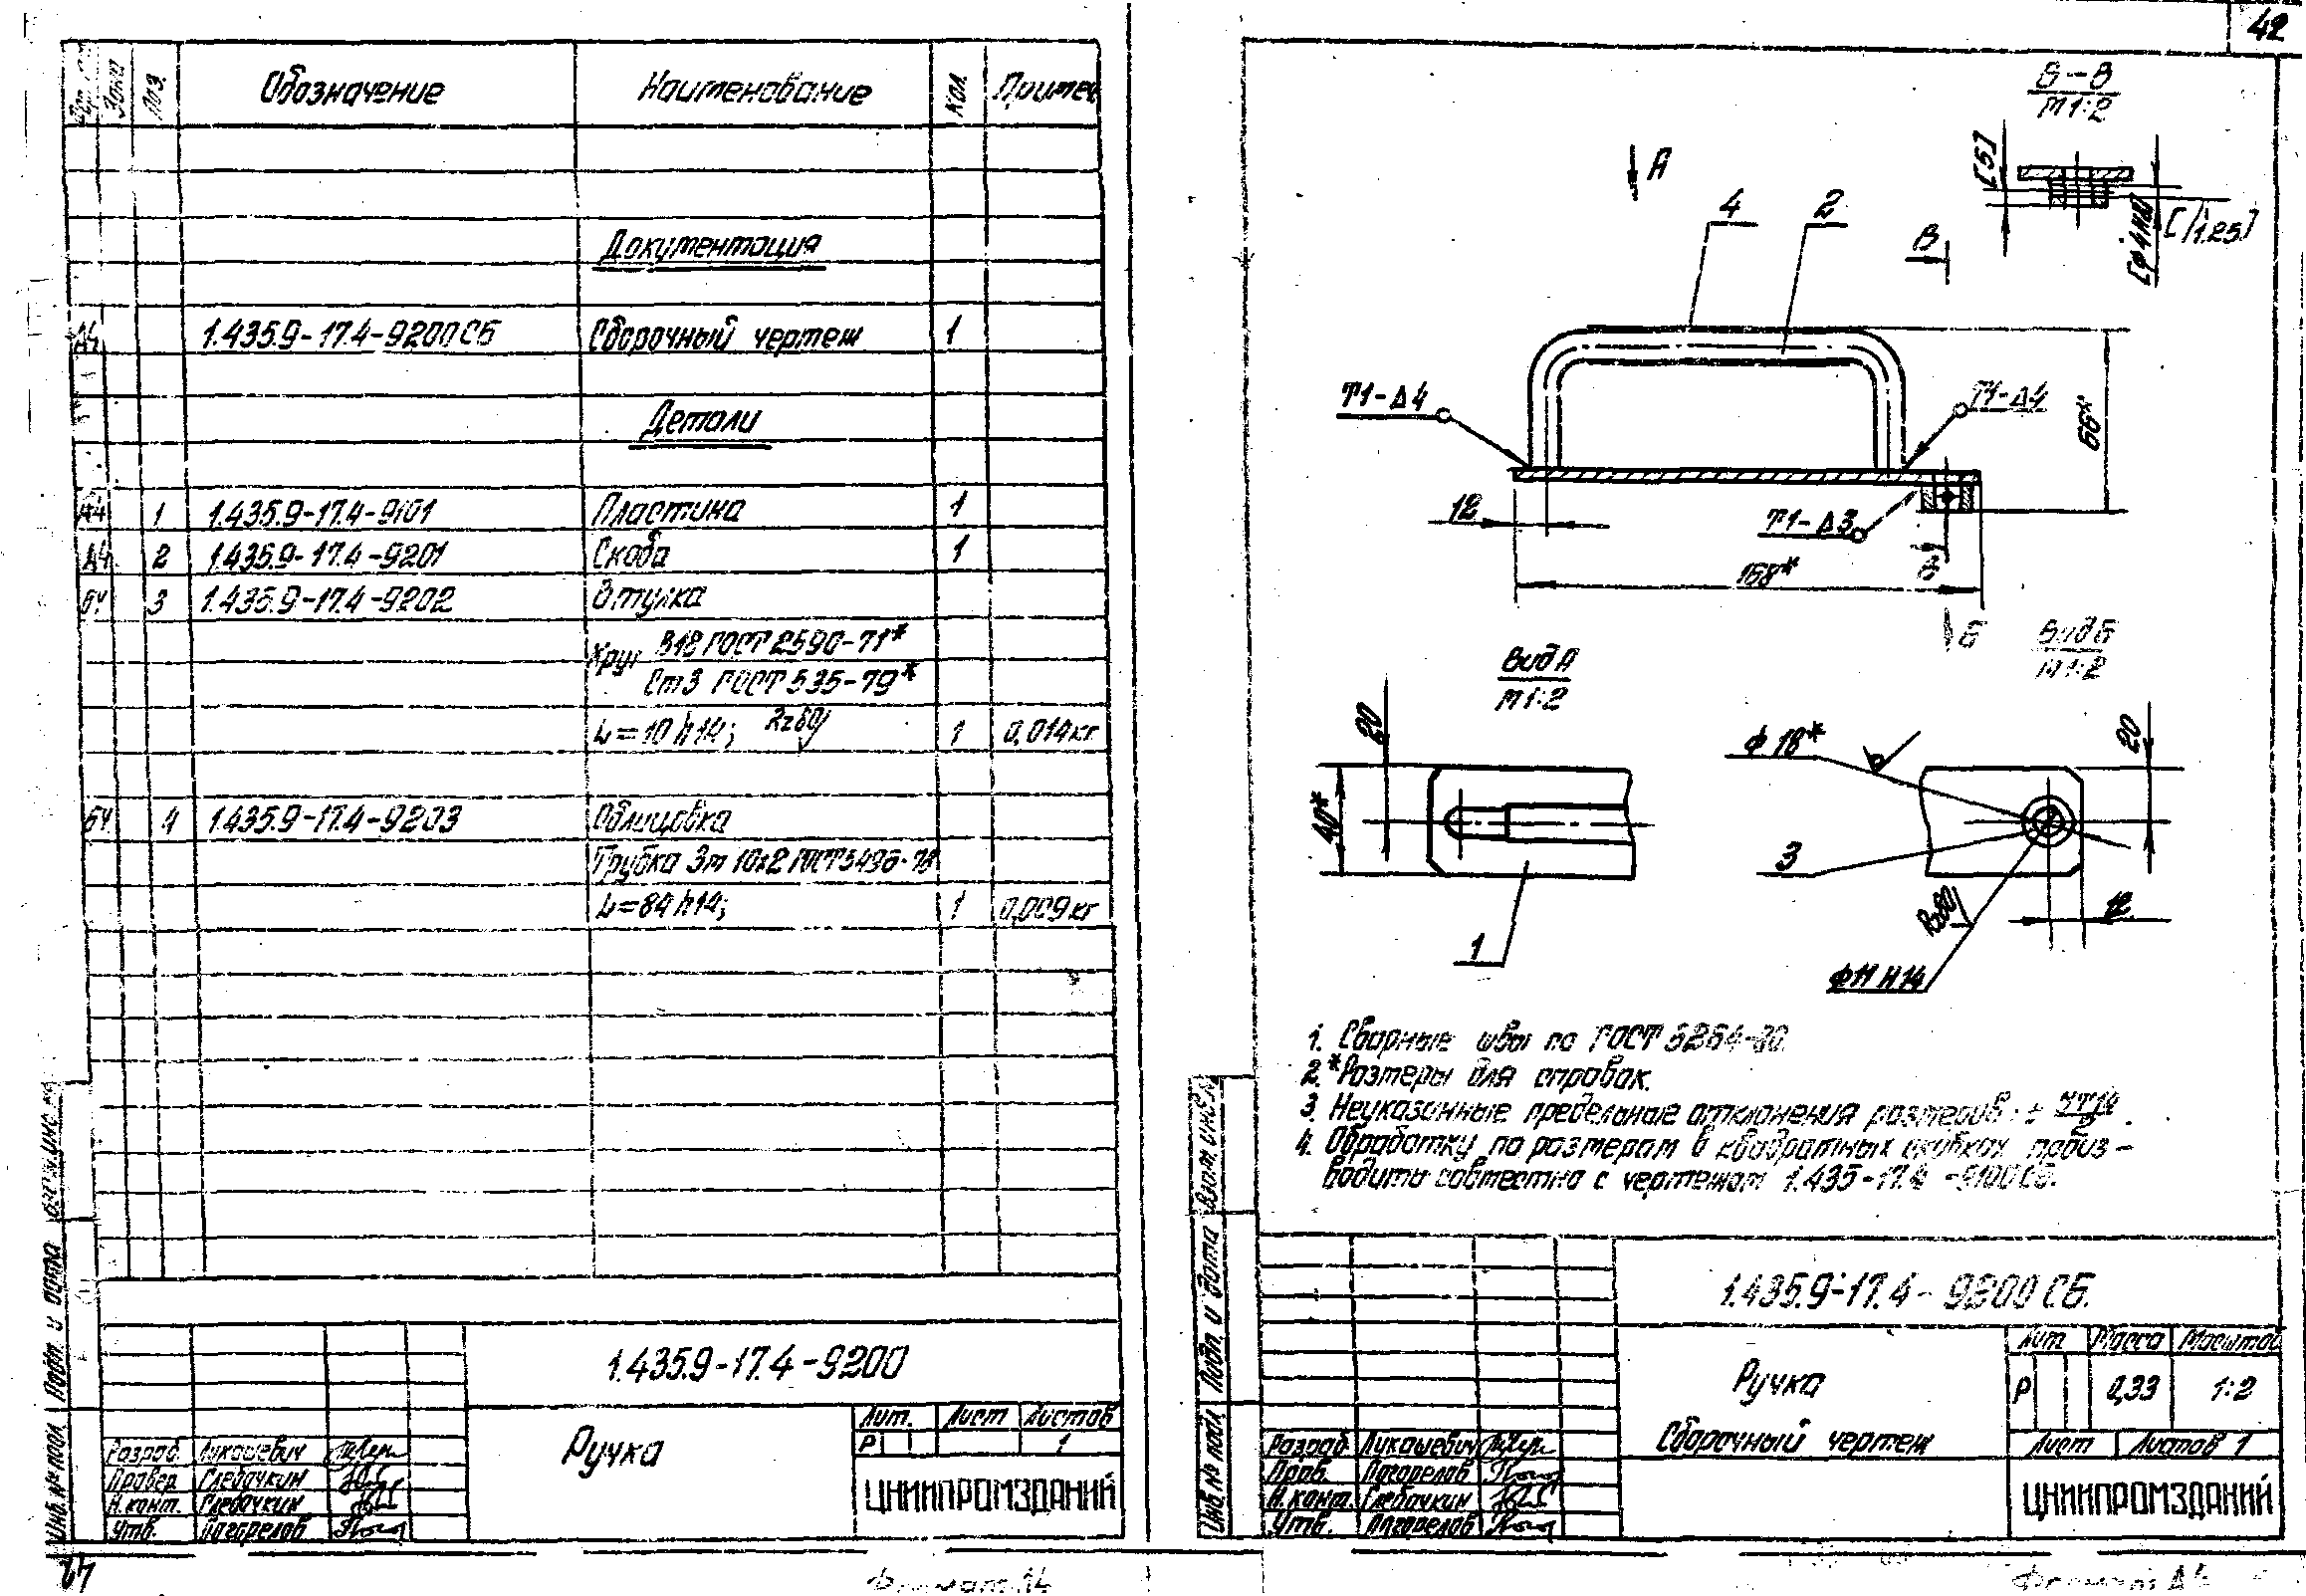 42
Поз.
Обозначение
Наименование
Кол.
Примеч
Документация
А4 1.435.9-17.4-9200СБ Сборочный чертеж 1
Детали
А4 1 1.435.9-17.4-9101 Пластина 1
А4 2 1.435.9-17.4-9201 Скоба 1
БЧ 3 1.435.9-17.4-9202 Втулка
Круг В18 ГОСТ 2590-71*
Ст3 ГОСТ 535-79*
L=10 h14; Rz80 1 0,014кг
БЧ 4 1.435.9-17.4-9203 Облицовка
Трубка 3т 10х2 ГОСТ 5496-78
L=84 h14; 1 0,009кг
1.435.9-17.4-9200
Ручка
Лит. Лист Листов
Р 1
ЦНИИПРОМЗДАНИЙ
Разраб. Лукашевич
Провер. Слебачкин
Н.конт. Слебачкин
Утв. Погорелов
Инв.№ подл
Подп. и дата
67
Формат А4
В-В
М1:2
[5]
[ф4Н8]
[1,25]
А
4
2
В
Т1-Δ4
Т1-Δ4
66*
12
Т1-Δ3
В
168*
Б
Вид А
М1:2
Вид Б
М1:2
20
40*
1
ф18*
20
3
Rz80
12
ф11 Н14
1. Сварные швы по ГОСТ 5264-80.
2.*Размеры для справок.
3. Неуказанные предельные отклонения размеров: ± JT14/2.
4. Обработку по размерам в квадратных скобках произ-
водить совместно с чертежом 1.435-17.4-9100СБ.
1.435.9-17.4-9200СБ.
Ручка
Сборочный чертеж
Лит Масса Масштаб
Р 0,33 1:2
Лист Листов 1
ЦНИИПРОМЗДАНИЙ
Разраб. Лукашевич
Пров. Погорелов
Н.конт. Слебачкин
Утв. Погорелов
Инв.№ подл
Подп. и дата
Взам.инв.№
Формат А4